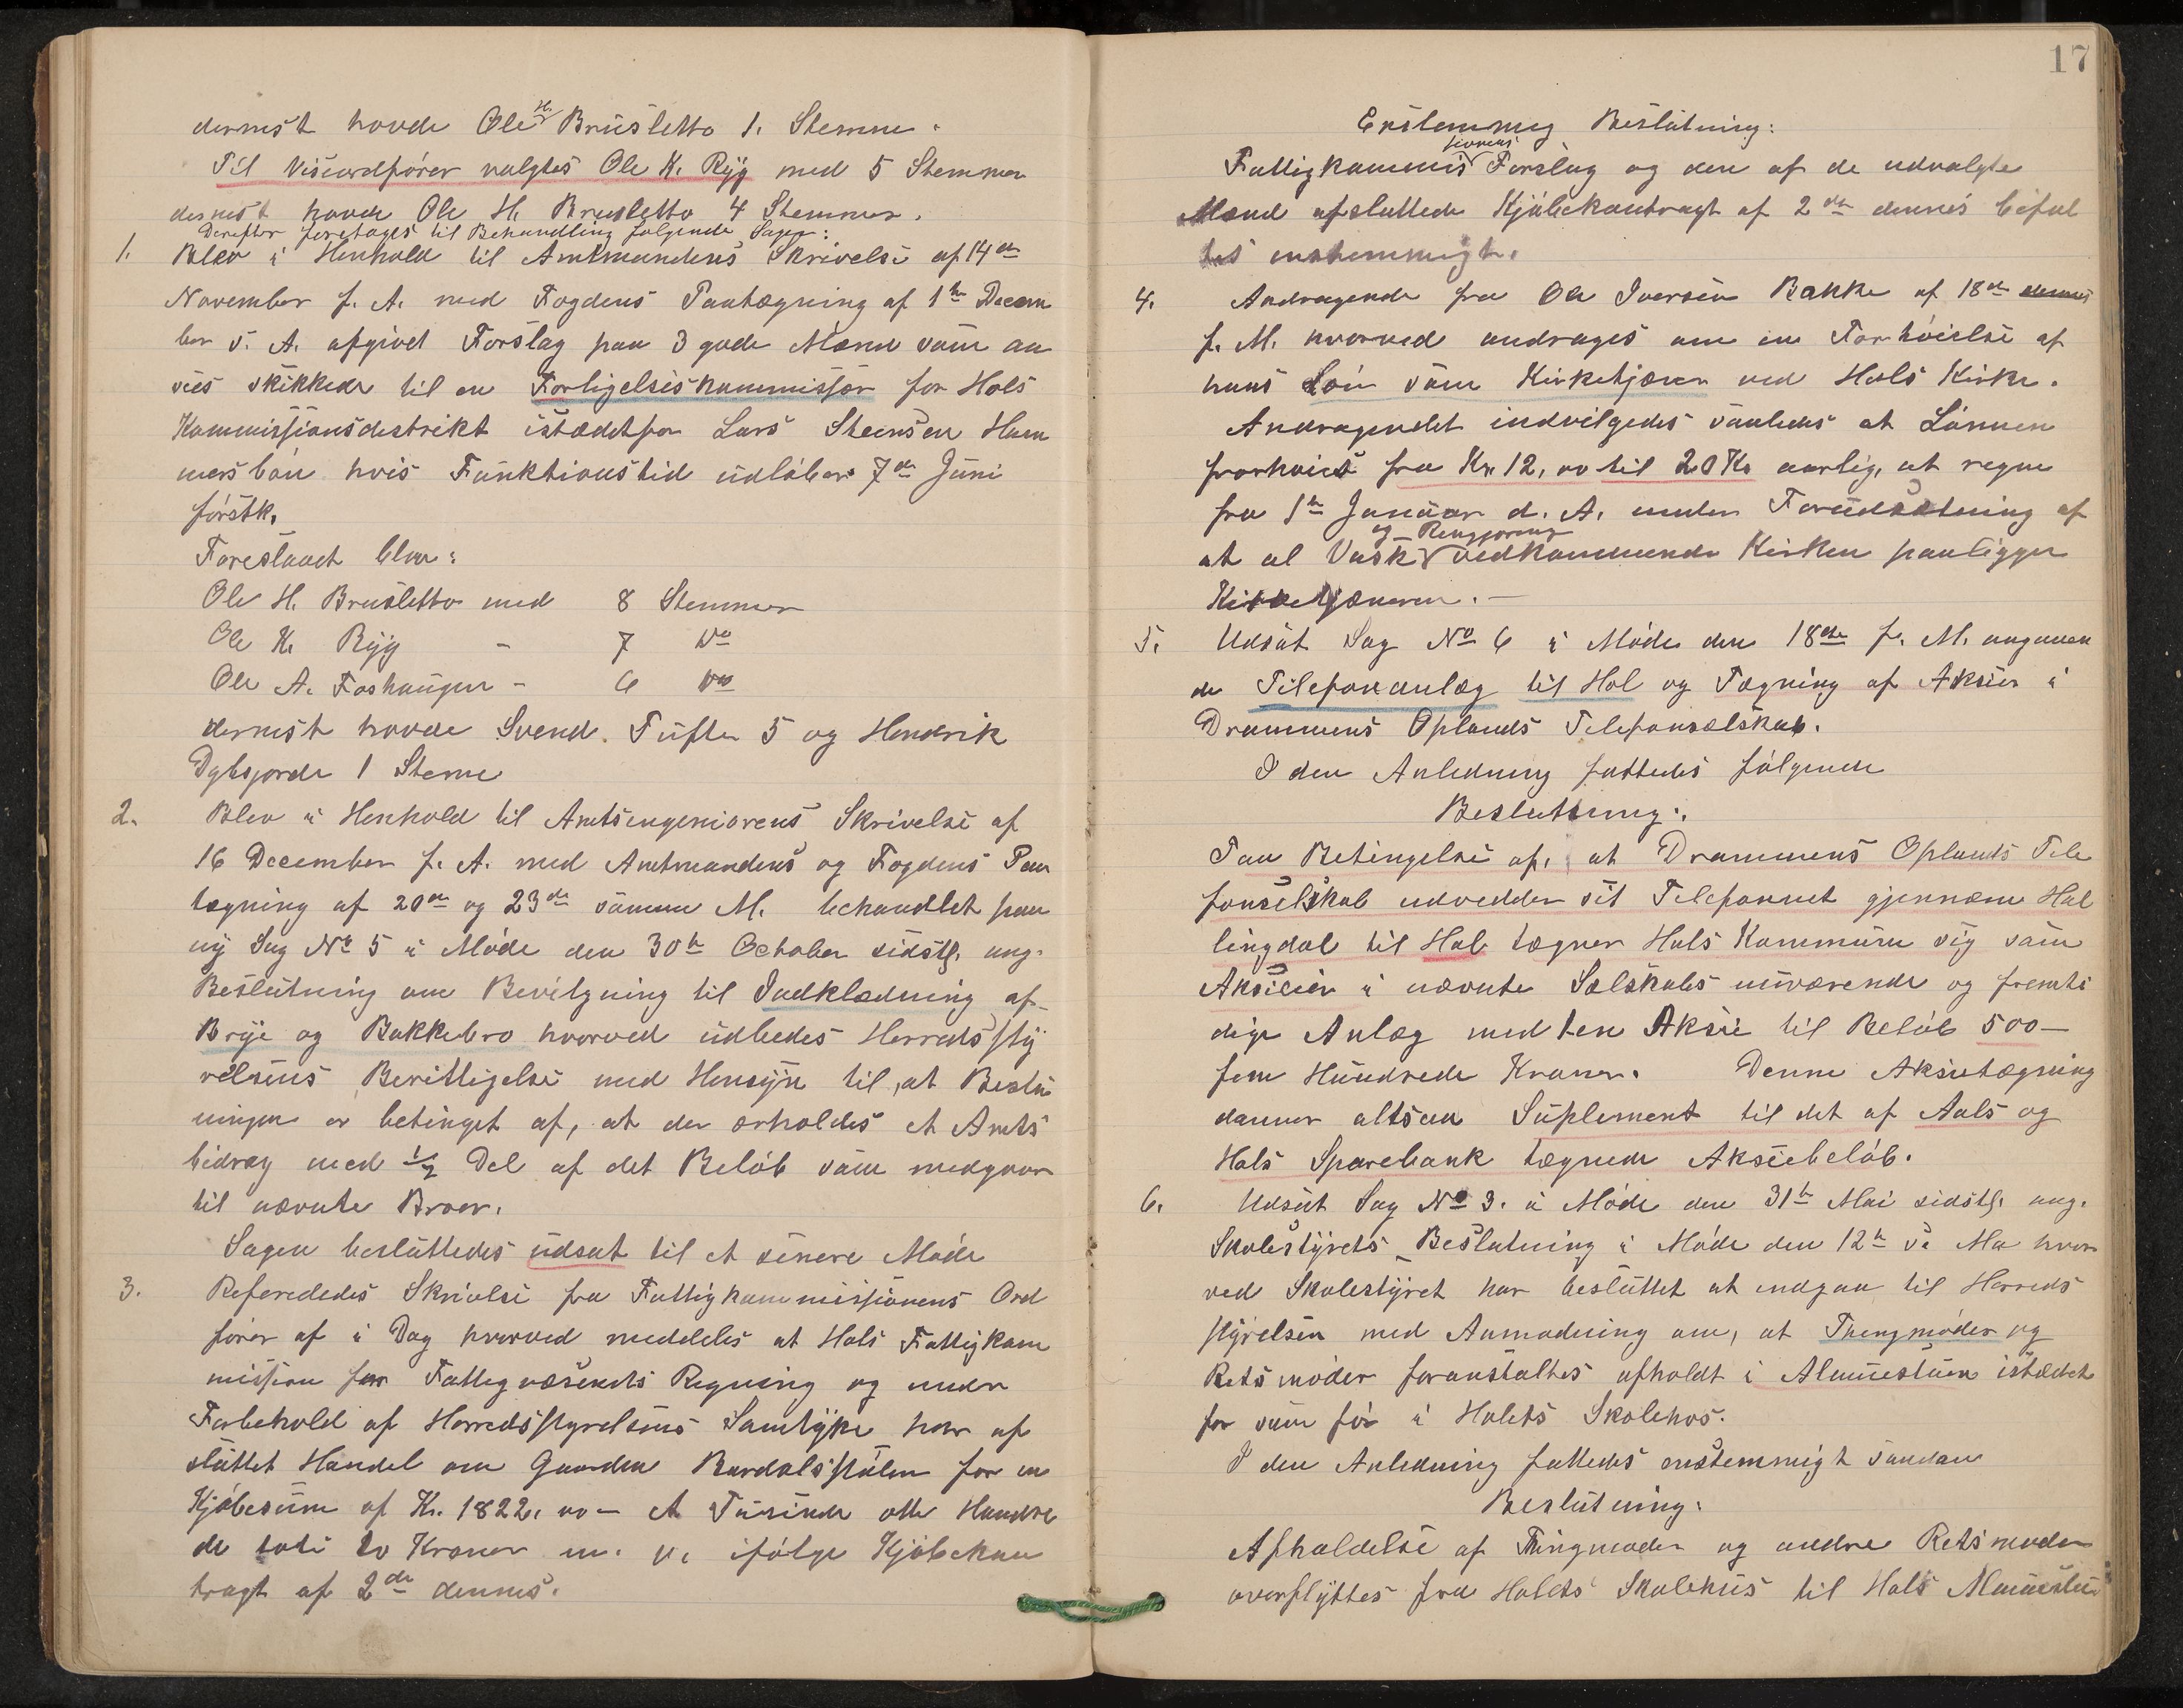 dernest havde Ole H. Brusletto 1. Stemme.
Til Viseordfører valgtes Ole K. Ryg med 5 Stemmer
dernest havde Ole H. Brusletto 4 Stemmer.
Derefter foretages til Behandling følgende Sager:
1. Blev i Henhold til Amtmandens Skrivelse af 14de
November f. A. med Fogdens Paategning af 1ste Decem
ber s. A. afgivet Forslag paa 3 gode Mænd som an
sees skikkede til en Forligelseskommissær for Hols
Kommissionsdestrikt istædetfor Lars Steensen Ham
mersbøn hvis Funktionstid udløber 7de Juni
førstk.
Foreslaaet blev:
Ole H. Brusletto med 8 Stemmer
Ole K. Ryg - 7 Do
Ole A. Foshaugen - 6 Do
dernest havde Svend Tufte 5 og Hendrik
Dybsjorde 1 Steme
2. Blev i Henhold til Amtsingeniørens Skrivelse af
16 December f. A. med Amtmandens og Fogdens Paa
tegning af 20de og 23de samme M. behandlet paa
ny Sag No 5 i Møde den 30te October sidstl. ang.
Beslutning om Bevilgning til Indklædning af
Brye og Bakkebro hvorved udbedes Herredssty
relsens Berettigelse med Hensyn til, at Beslut
ningen er betinget af, at der erholdes et Amts
bidrag med ½ Del af det Beløb som medgaar
til nævnte Broer.
Sagen besluttedes udsat til et senere Møde
3. Refereredes Skrivelse fra Fattigkommissionens Ord
fører af i Dag hvorved meddeles at Hols Fattigkom
mission for Fattigvæsenets Regning og under
Forbehold af Herredsstyrelsens Samtykke har af
sluttet Handel om Gaarden Bardalsstølen for en
Kjøbesum af Kr. 1822,00 - Et Tusinde otte Hundre
de toti to Kroner m. v. ifølge Kjøbekon
tragt af 2de dennes.
17
Enstemmig Beslutning:
Fattigkommissionens Forslag og den af de udvalgte
Mænd afsluttede Kjøbekontragt af 2den dennes bifal
tes enstemmigt.
4. Andragende fra Ole Iversen Bakke af 18de dennes
f. M. hvorved andrages om en Forhøielse af
hans Løn som Kirketjener ved Hols Kirke.
Andragendet indvilgedes saaledes at Lønnen
forhøies fra Kr. 12,00 til 20 Kr aarlig, at regne
fra 1ste Januar d. A. under Forudsætning af
at al Vask og Rengjøring vedkommende Kirken paaligger
Kirketjeneren. -
5. Udsat Sag No 6 i Møde den 18de f. M. angaaen
de Telefonanlæg til Hol og Tegning af Aksier i
Drammens Oplands Telefonselskab.
I den Anledning fattedes følgende
Beslutning:
Paa Betingelse af, at Drammens Oplands Tele
fonselskab udvedder sit Telefonnet gjennem Hal
lingdal til Hol tegner Hols Kommune sig som
Aksieeier i nævnte Selskabs nuværende og fremti
dige Anlæg med ten Aksie til Beløb 500 -
fem Hundrede Kroner. Denne Aksietegning
danner altsaa Suplement til det af Aals og
Hols Sparebank tegnede Aksiebeløb.
6. Udsat Sag No 3. i Møde den 31te Mai sidstl. ang.
Skolestyrets Beslutning i Møde den 12te s. Ma hvor
ved Skolestyret har besluttet at indgaa til Herreds
styrelsen med Anmodning om, at Thingmøder og
Retsmøder foranstaltes afholdt i Almuestuen istædet
for som før i Holets Skolehos.
I den Anledning fattedes enstemmigt saadan
Beslutning:
Afholdelse af Thingmøder og andre Retsmøder
overflyttes fra Holets Skolehus til Hols Almuestue